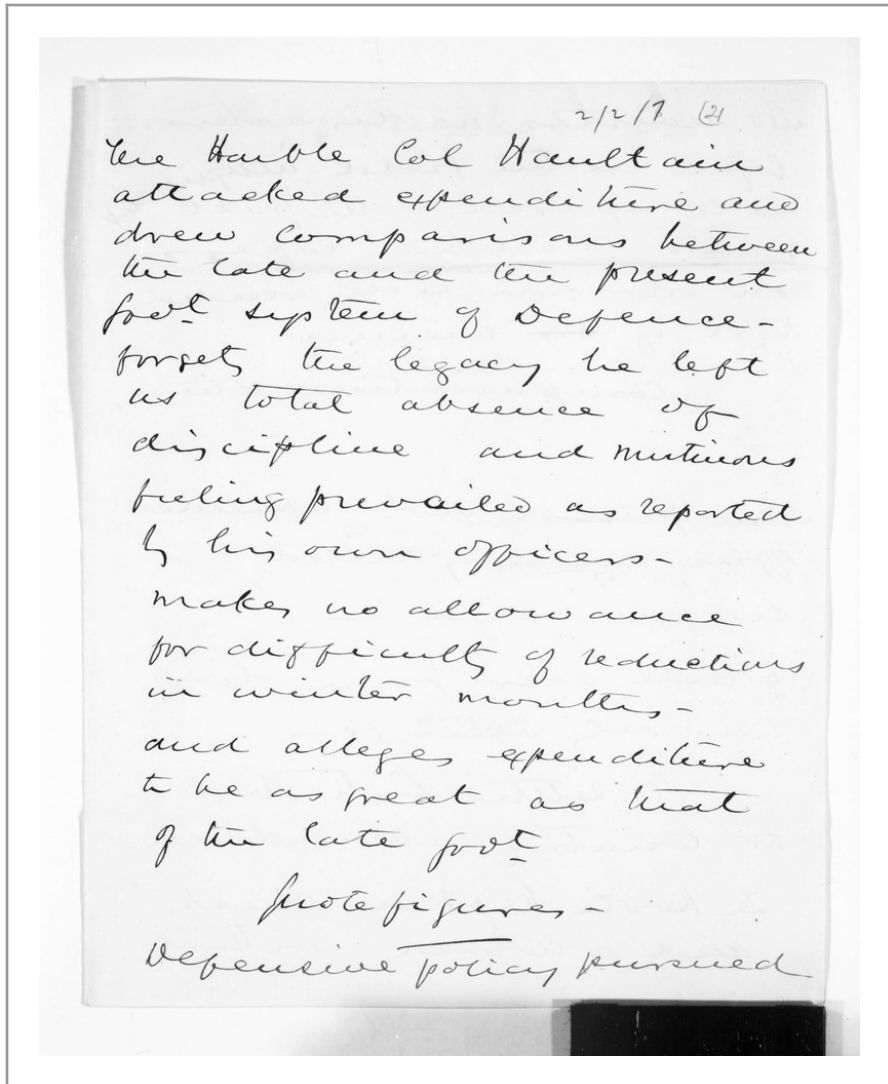 2/2/7 (2)
The Honble Col Haultain
attacked expenditure and
drew comparisons between
the late and the present
Govt system of Defence -
forgets the legacy he left
us total absence of
discipline and mutinous
feeling prevailed as reported
by his own officers -
makes no allowance
for difficulty of reductions
in winter months -
and alleges expenditure
to be as great as that
of the late Govt
quote figures -
Defensive policy pursued